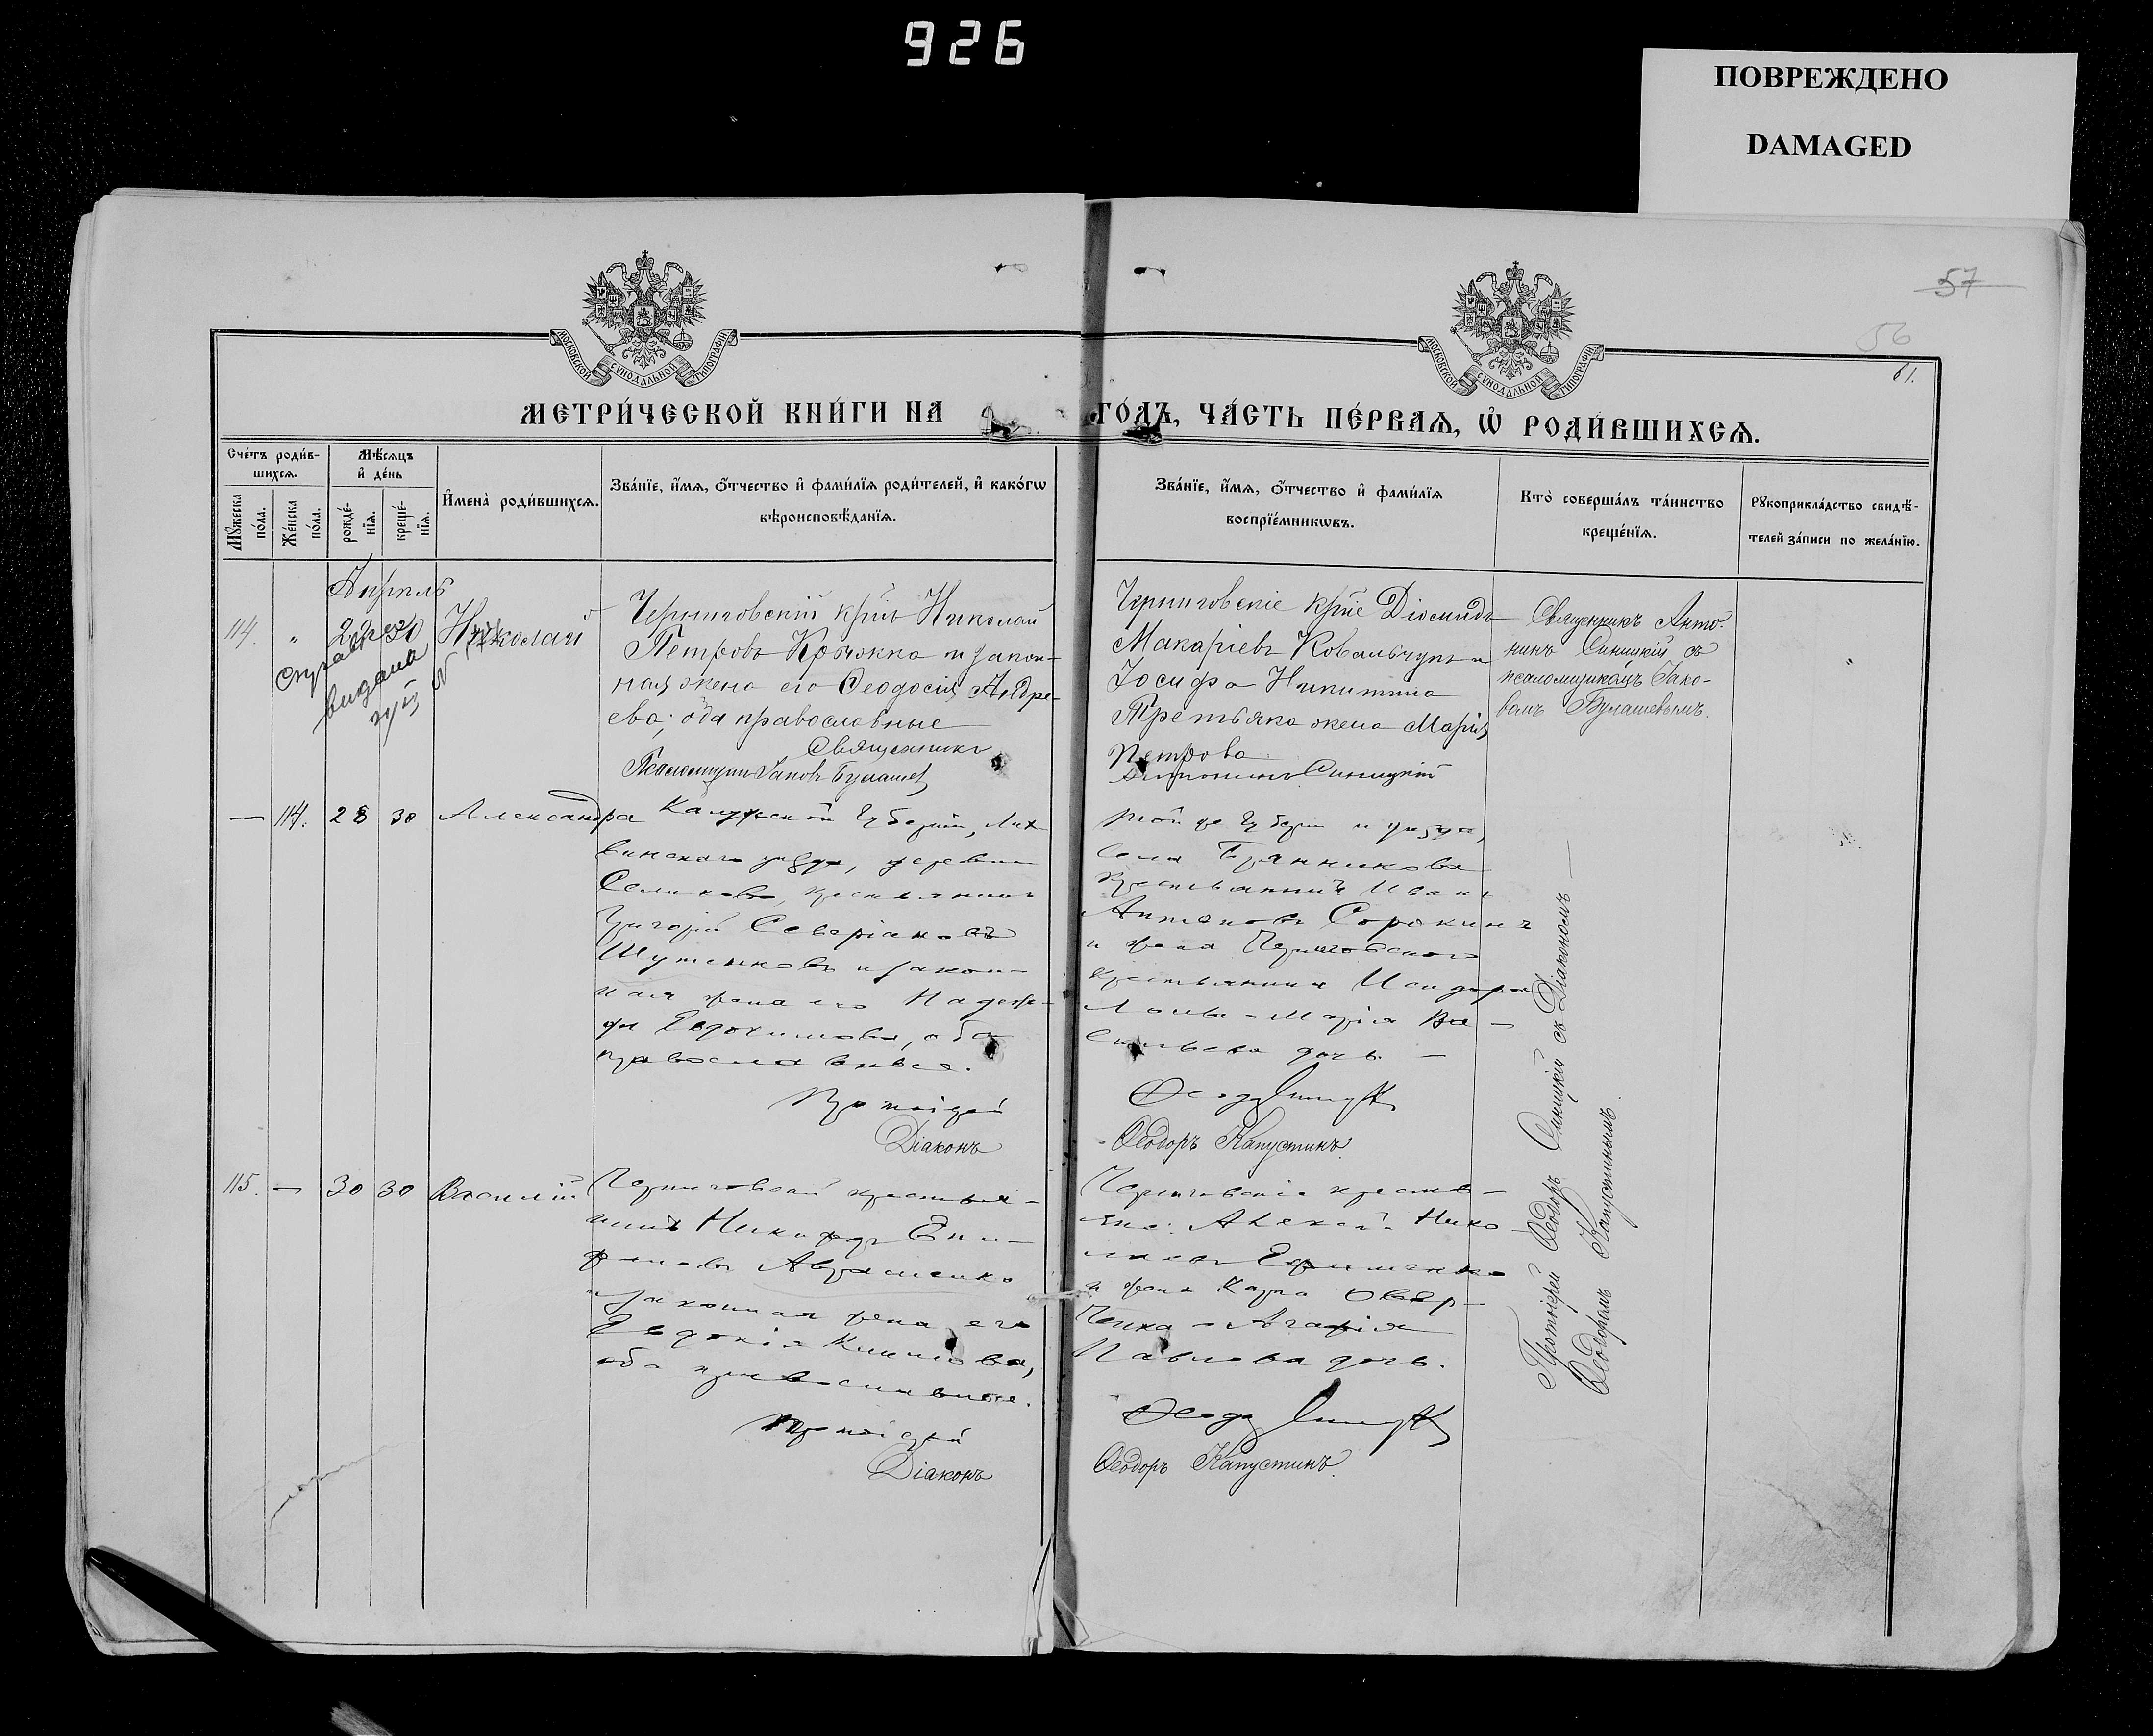 926
ПОВРЕЖДЕНО
DAMAGED
57
56
61.
МОСКОВСКОЙ СУНОДАЛЬНОЙ ТИПОГРАФІИ
МОСКОВСКОЙ СУНОДАЛЬНОЙ ТИПОГРАФІИ
МЕТРИ́ЧЕСКОЙ КНИ́ГИ НА ГО́ДЪ, ЧА́СТЬ ПЕ́РВАѦ, Ѡ҆ РОДИ́ВШИХСѦ.
Сче́тъ роди́в-
шихсѧ.
Мꙋ́жеска по́ла.
Же́нска по́ла.
Мѣ́сѧцъ
и҆ де́нь
рожде́-
нїѧ.
креще́-
нїѧ.
И҆мена̀ роди́вшихсѧ.
Зва́нїе, и҆́мѧ, ѻ҆́тчество и҆ фами́лїѧ роди́телей, и҆ како́гѡ
вѣроисповѣ́данїѧ.
Зва́нїе, и҆́мѧ, ѻ҆́тчество и҆ фами́лїѧ
воспрїе́мникѡвъ.
Кто̀ соверша́лъ та́инство
креще́нїѧ.
Рꙋкоприкла́дство свидѣ́-
телей за́писи по жела́нїю.
Апрель
114. " 22 30 Николай
видана
Черниговскій крнъ Николай
Петровъ Крючко и закон-
ная жена его Ѳеодосія Андре-
ева; оба православные
Священникъ
Псаломщикъ Іаковъ Булашев
Черниговскіе крне Діомидъ
Макаріевъ Ковальчукъ и
Іосифа Никитина
Третьяка жена Марія
Петрова
Антонинъ Синицкій
Священникъ Анто-
нинъ Синицкій съ
псаломщикомъ Іако-
вомъ Булашевымъ.
"
— 114. 28 30 Александра
Калужской Губерніи, Лих-
винскаго уѣзда, деревни
Селиково, крестьянинъ
Григорій Северіановъ
Шутенковъ и закон-
ная жена его Надеж-
да Евдокимова, оба
православные.
Протоіерей
Діаконъ
той же Губерніи и уѣзда,
села Бранникова
крестьянинъ Иванъ
Антоновъ Сорокинъ
и жена Черниговскаго
крестьянина Исидора
Марія Ва-
сильева дочь. —
Ѳеодоръ Синицкій
Ѳеодоръ Капустинъ.
Протоіерей Ѳеодоръ Синицкій съ Діакономъ —
Ѳеодоромъ Капустинымъ.
115. — 30 30 Василій
Черниговскій крестья-
нинъ Никифоръ Епи-
фановъ Авраменко
и законная жена его
Евдокія Климова,
оба православные.
Протоіерей
Діаконъ
Черниговскіе кресть-
яне: Алексѣй Нико-
лаевъ Ефименко
и жена Карпа Овер-
ченка – Агафія
Павлова дочь.
Ѳеодоръ Синицкій
Ѳеодоръ Капустинъ.